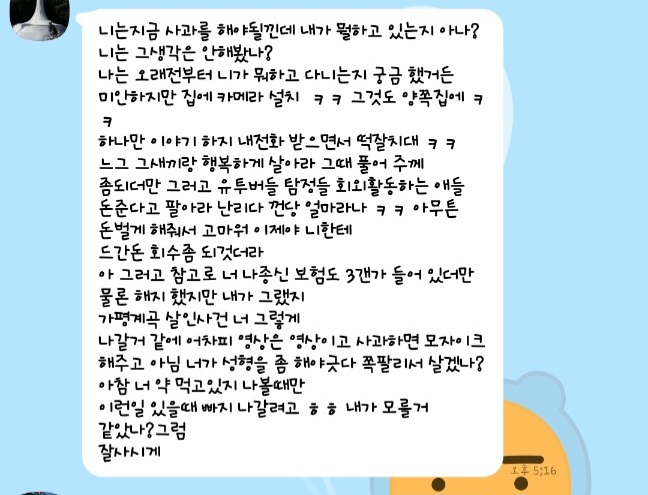 니는지금 사과를 해야될낀데 내가 뭘하고 있는지 아나?
니는 그생각은 안해봤나?
나는 오래전부터 니가 뭐하고 다니는지 궁금 했거든
미안하지만 집에 카메라 설치  ㅋㅋ 그것도 양쪽집에 ㅋ
ㅋ
하나만 이야기 하지 내전화 받으면서 떡잘치대 ㅋㅋ
느그 그새끼랑 행복하게 살아라 그때 풀어 주께
좀되더만 그러고 유투버들 탐정들 회외활동하는 애들
돈준다고 팔아라 난리다 껀당 얼마라나 ㅋㅋ 아무튼
돈벌게 해줘서 고마워 이제야 니한테
드간돈 회수좀 되것더라
아 그러고 참고로 너 나종신 보험도 3갠가 들어 있더만
물론 해지 했지만 내가 그랬지
가평계곡 살인사건 너 그렇게
나갈거 같에 어차피 영상은 영상이고 사과하면 모자이크
해주고 아님 너가 성형을 좀 해야긋다 쪽팔리서 살겠나?
아참 너 약 먹고있지 나볼때만
이런일 있을때 빠지 나갈려고 ㅎㅎ 내가 모를거
같았나?그럼
잘사시게
오후 5:16